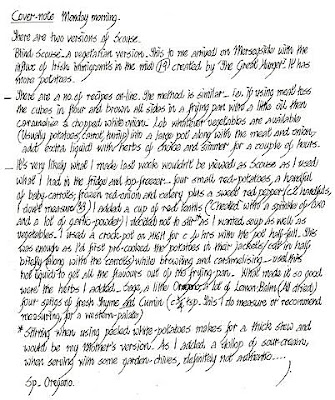 Cover-note Monday morning.
There are two versions of Scouse.
Blind Scouse - a vegetarian version. This to me arrived on Merseyside with the
influx of Irish immigrants in the mid (19) created by 'The Great Hunger'. It has
more potatoes.
— There are a no. of recipes on-line. The method is similar - i.e. if using meat toss
the cubes in flour and brown all sides in a frying pan with a little oil then
caramalise a chopped white onion. Lob whatever vegetables are available
(Usually potatoes, carrot, turnip) into a large pot along with the meat and onion,
add extra liquid with herbs of choice and simmer for a couple of hours.
— It's very likely what I made last week wouldn't be viewed as Scouse as I used
what I had in the fridge and top-freezer - four small red-potatoes, a handful
of baby-carrots, frozen red-onion and celery plus a sweet red pepper (2 handfuls,
I don't measure) I added a cup of red lentils (Checked with a sprinkle of
and a lot of garlic-powder) I decided not to stir as I wanted soup as well as
vegetables. I used a crock-pot on high for 2 hrs with the pot half-full. This
was enough as I'd first pre-cooked the potatoes in their jackets (cut in half
briefly along with the carrots) while browning and caramelising - used this
hot liquid to get all the flavours out of the frying-pan. What made it so good
were the herbs I added - Sage, a little Oregano, a lot of Lemon-Balm (All dried)
four sprigs of fresh thyme and Cumin (tsp. This I do measure or recommend
measuring, for a western-palate)
* Stirring when using peeled white-potatoes makes for a thick stew and
would be my Mother's version. As I added a dollop of sour-cream,
when serving with some garden-chives, definitely not authentic....
Sp. Oregano.